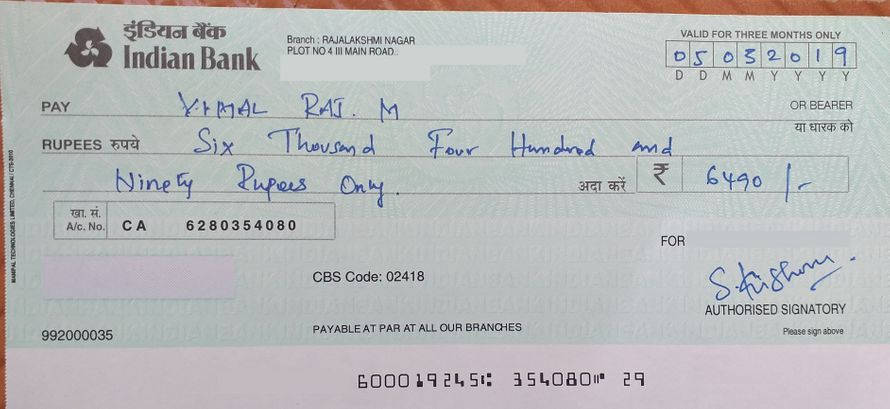 इंडियन बैंक
Indian Bank
Branch : RAJALAKSHMI NAGAR
PLOT NO 4 III MAIN ROAD.
VALID FOR THREE MONTHS ONLY
0 5 0 3 2 0 1 9
D D M M Y Y Y Y
PAY VIMAL RAJ. M OR BEARER
या धारक को
RUPEES रुपये Six Thousand Four Hundred and
Ninety Rupees Only. अदा करें ₹ 6490/-
खा. सं.
A/c. No. CA 6280354080
FOR
CBS Code: 02418
AUTHORISED SIGNATORY
Please sign above
992000035
PAYABLE AT PAR AT ALL OUR BRANCHES
600019245⑆ 354080⑈ 29
MANIPAL TECHNOLOGIES LIMITED, CHENNAI / CTS-2010